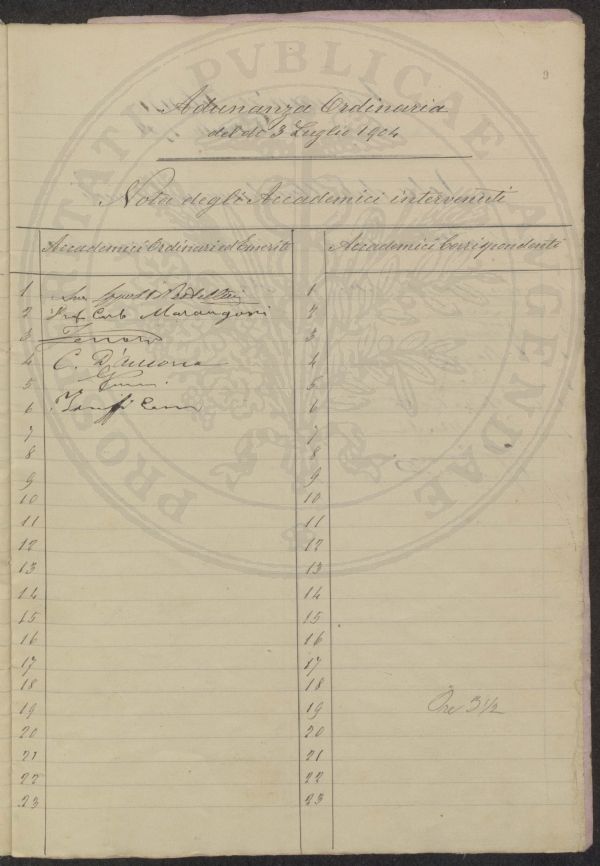 9
Adunanza Ordinaria
del dì 3 Luglio 1904
Nota degli Accademici intervenuti
Accademici Ordinari ed Emeriti
Accademici Corrispondenti
1
2 Prof. Carlo Marangoni
3
4 C. D'Ancona
5
6
7
8
9
10
11
12
13
14
15
16
17
18
19
20
21
22
23
1
2
3
4
5
6
7
8
9
10
11
12
13
14
15
16
17
18
19 Ore 3 1/2
20
21
22
23
PROSPERITATI PVBLICAE AVGENDAE